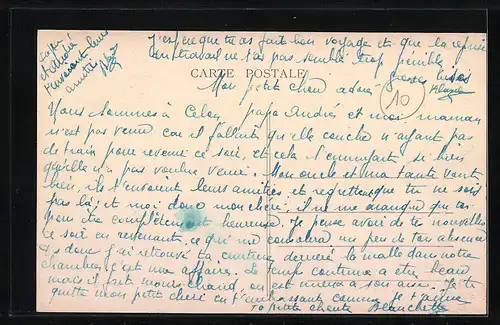 J'espère que tu as fait bon voyage et que la reprise
du travail ne t'as pas semblé trop pénible
CARTE POSTALE
Mon petit chéri adoré
10
Nous sommes à Celon, papa André et moi, maman
n'est pas venue car il fallait qu'elle couche n'ayant pas
de train pour revenir ce soir, et cela l'ennuyait si bien
qu'elle n'a pas voulu venir. Mon oncle et ma tante vont
bien, ils t'envoient leurs amitiés et regrettent que tu ne sois
pas là; et moi donc mon chéri, il ne me manque que toi
pour être complètement heureuse. Je pense avoir de tes nouvelles
ce soir en revenant, ce qui me consolera un peu de ton absence
donc j'ai retrouvé ta ceinture derrière la malle dans notre
chambre, c'est une affaire. Le temps continue a être beau
mais il fait moins chaud, on est mieux a son aise. Je te
quitte mon petit chéri en t'embrassant comme je t'aime
Ta petite chérie Blanchette
envoient leurs
amitiés